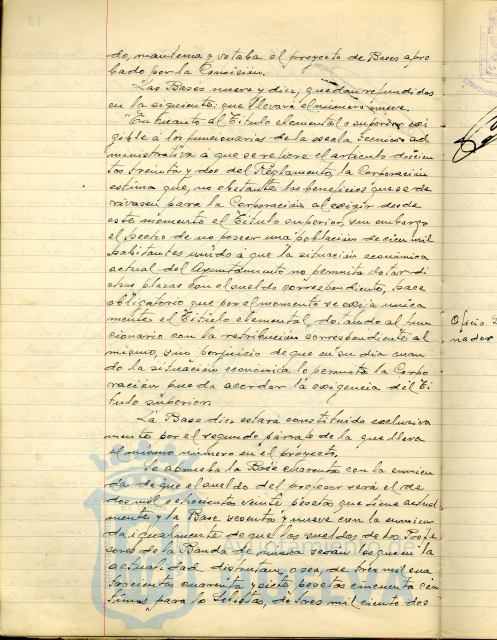 do, mantenia y votaba el proyecto de Bases apro
bado por la Comision.
Las Bases nueve y diez, quedan refundidas
en la siguiente: que llevará el número nueve.
"En cuanto al Título elemental o superior exi
gible á los funcionarios de la escala tecnico ad
ministrativa a que se refiere el artículo doscien
tos treinta y dos del Reglamento, la Corporacion
estima que, no obstante los beneficios que se de
rivasen para la Corporacion al exigir desde
este momento el Título superior, sin embargo
el hecho de no poseer una poblacion de cien mil
habitantes unido a que la situacion económica
actual del Ayuntamiento no permita dotar di
chas plazas con el sueldo correspondiente, hace
obligatorio que por el momento se exija unica
mente el Título elemental, dotando al fun
cionario con la retribucion correspondiente al
mismo, sin perjuicio de que en su dia cuan
do la situacion economica lo permita la Corpo
racion pueda acordar la exigencia del Tí
tulo superior.
La Base diez estará constituida exclusiva
mente por el segundo párrafo de la que lleva
el mismo número en el proyecto.
Se aprueba la Base cuarenta con la enmien
da de que el sueldo del profesor será el de
dos mil setecientas veinte pesetas que tiene actual
mente y la Base sesenta y nueve con la enmien
da igualmente de que los sueldos de los Profe
sores de la Banda de musica seran los que en la
actualidad disfrutan, o sea, de tres mil cua
trocientas cuarenta y siete pesetas cincuenta cén
timos para los Solistas, de tres mil ciento dos
Oficio
nador